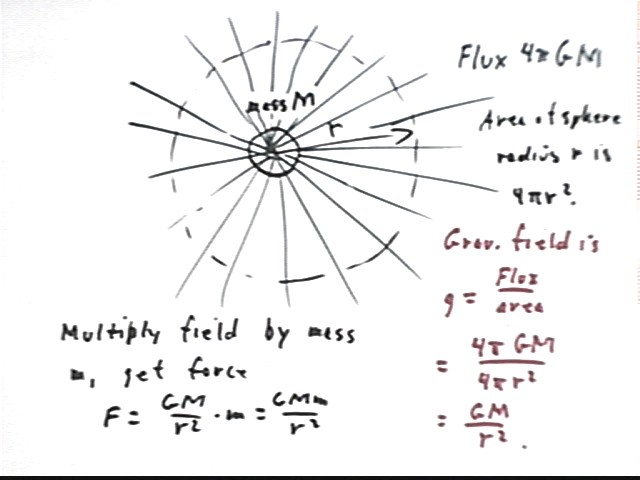 Flux 4πGM
mass M
r
Area of sphere
radius r is
4πr².
Grav. field is
g = Flux / area
= 4π GM / 4πr²
= GM / r².
Multiply field by mess
m, get force
F = GM / r² · m = GMm / r²